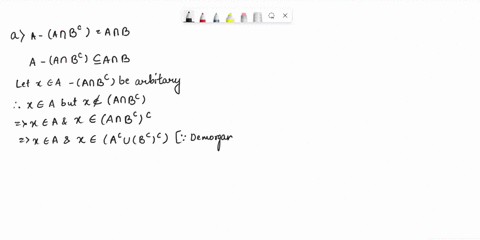 a) A - (A∩Bᶜ) = A∩B
A - (A∩Bᶜ) ⊆ A∩B
Let x ∈ A - (A∩Bᶜ) be arbitary
∴ x ∈ A but x ∉ (A∩Bᶜ)
=> x ∈ A & x ∈ (A∩Bᶜ)ᶜ
=> x ∈ A & x ∈ (Aᶜ∪(Bᶜ)ᶜ) [∵ Demorgan